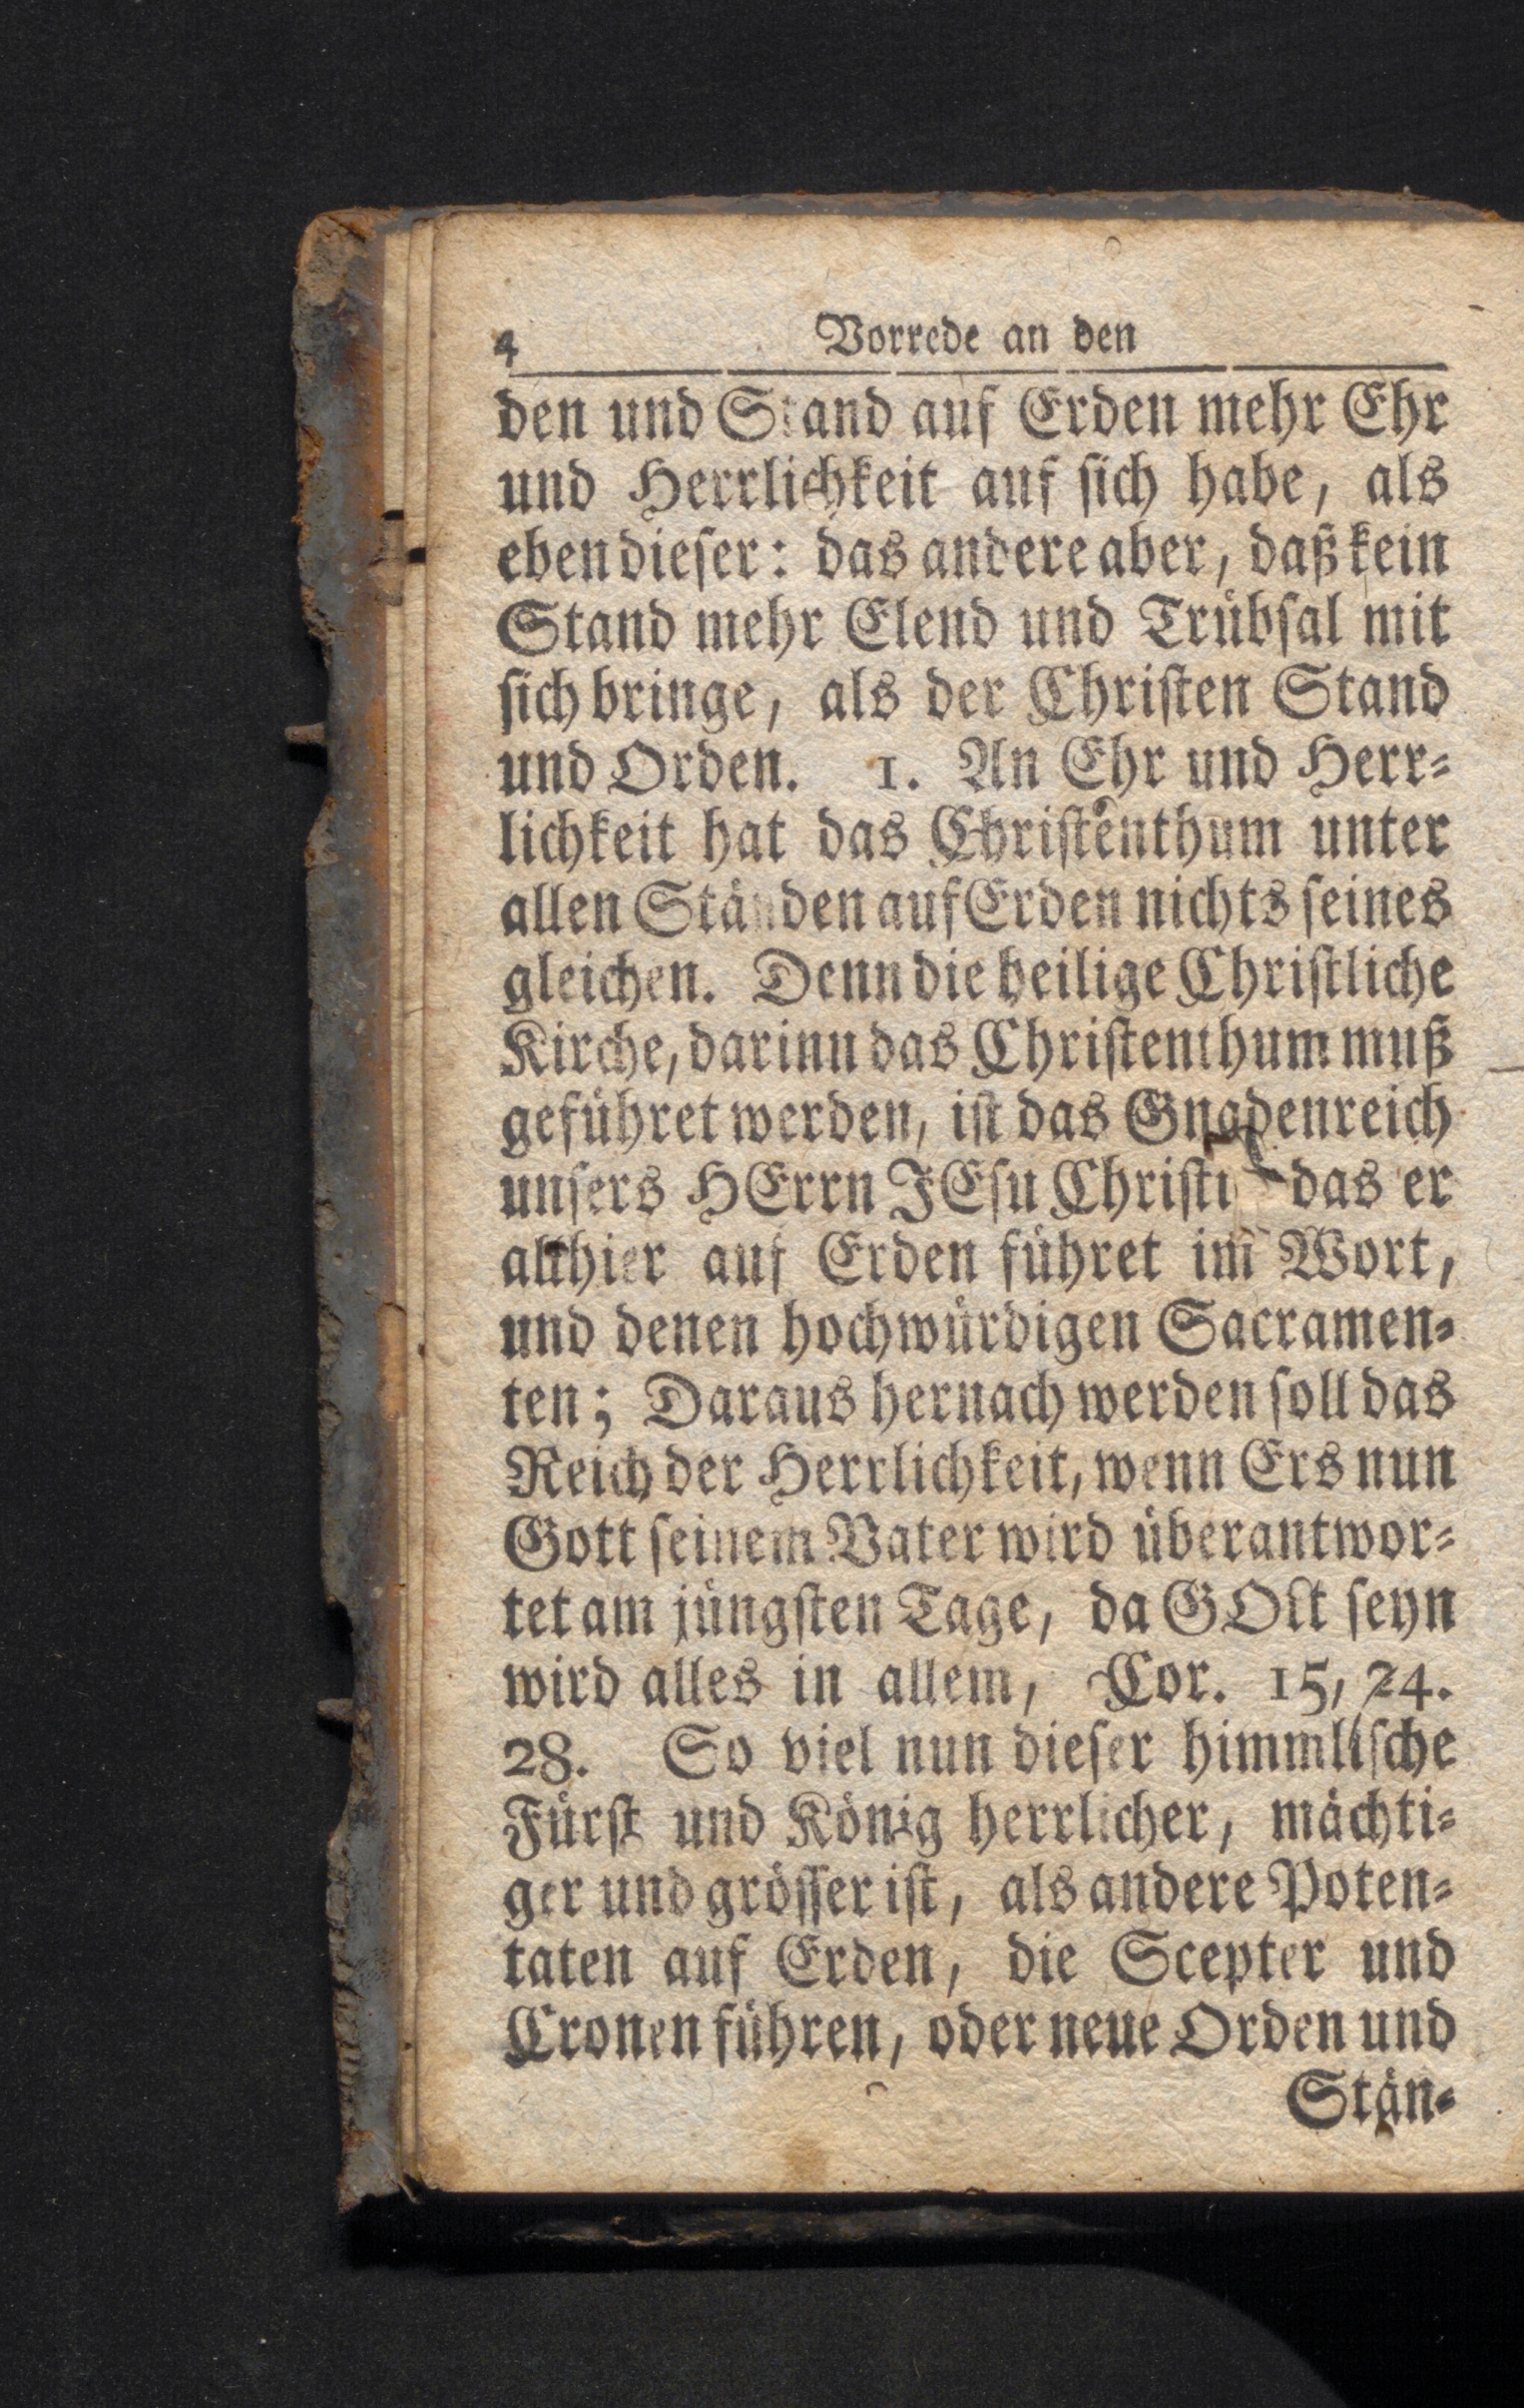 4 Vorrede an den
den und Stand auf Erden mehr Ehr
und Herrlichkeit auf sich habe, als
eben dieser: das andere aber, daß kein
Stand mehr Elend und Trübsal mit
sich bringe, als der Christen Stand
und Orden. 1. An Ehr und Herr-
lichkeit hat das Christenthum unter
allen Ständen auf Erden nichts seines
gleichen. Denn die heilige Christliche
Kirche, darinn das Christenthum muß
geführet werden, ist das Gnadenreich
unsers HErrn JEsu Christi das er
allhier auf Erden führet im Wort,
und denen hochwürdigen Sacramen-
ten; Daraus hernach werden soll das
Reich der Herrlichkeit, wenn Ers nun
Gott seinem Vater wird überantwor-
tet am jüngsten Tage, da GOtt seyn
wird alles in allem, Cor. 15, 24.
28. So viel nun dieser himmlische
Fürst und König herrlicher, mächti-
ger und grösser ist, als andere Poten-
taten auf Erden, die Scepter und
Cronen führen, oder neue Orden und
Stän-